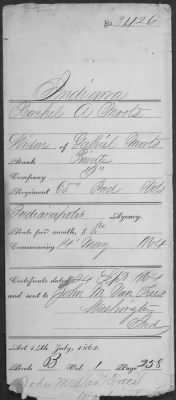 No. 31126
Indiana
Rachel A Moots
Widow of Gabriel Moots
Rank Private
Company "F"
Regiment 65th Ind Vols
Indianapolis Agency.
Rate per month, $ 8 00
Commencing 14 May 1864
Certificate dated 24 Sept 1864
and sent to John M. Van Trees
Washington
Ind
Act 14th July, 1862.
Book B Vol. 1 Page 258
John M Van Trees